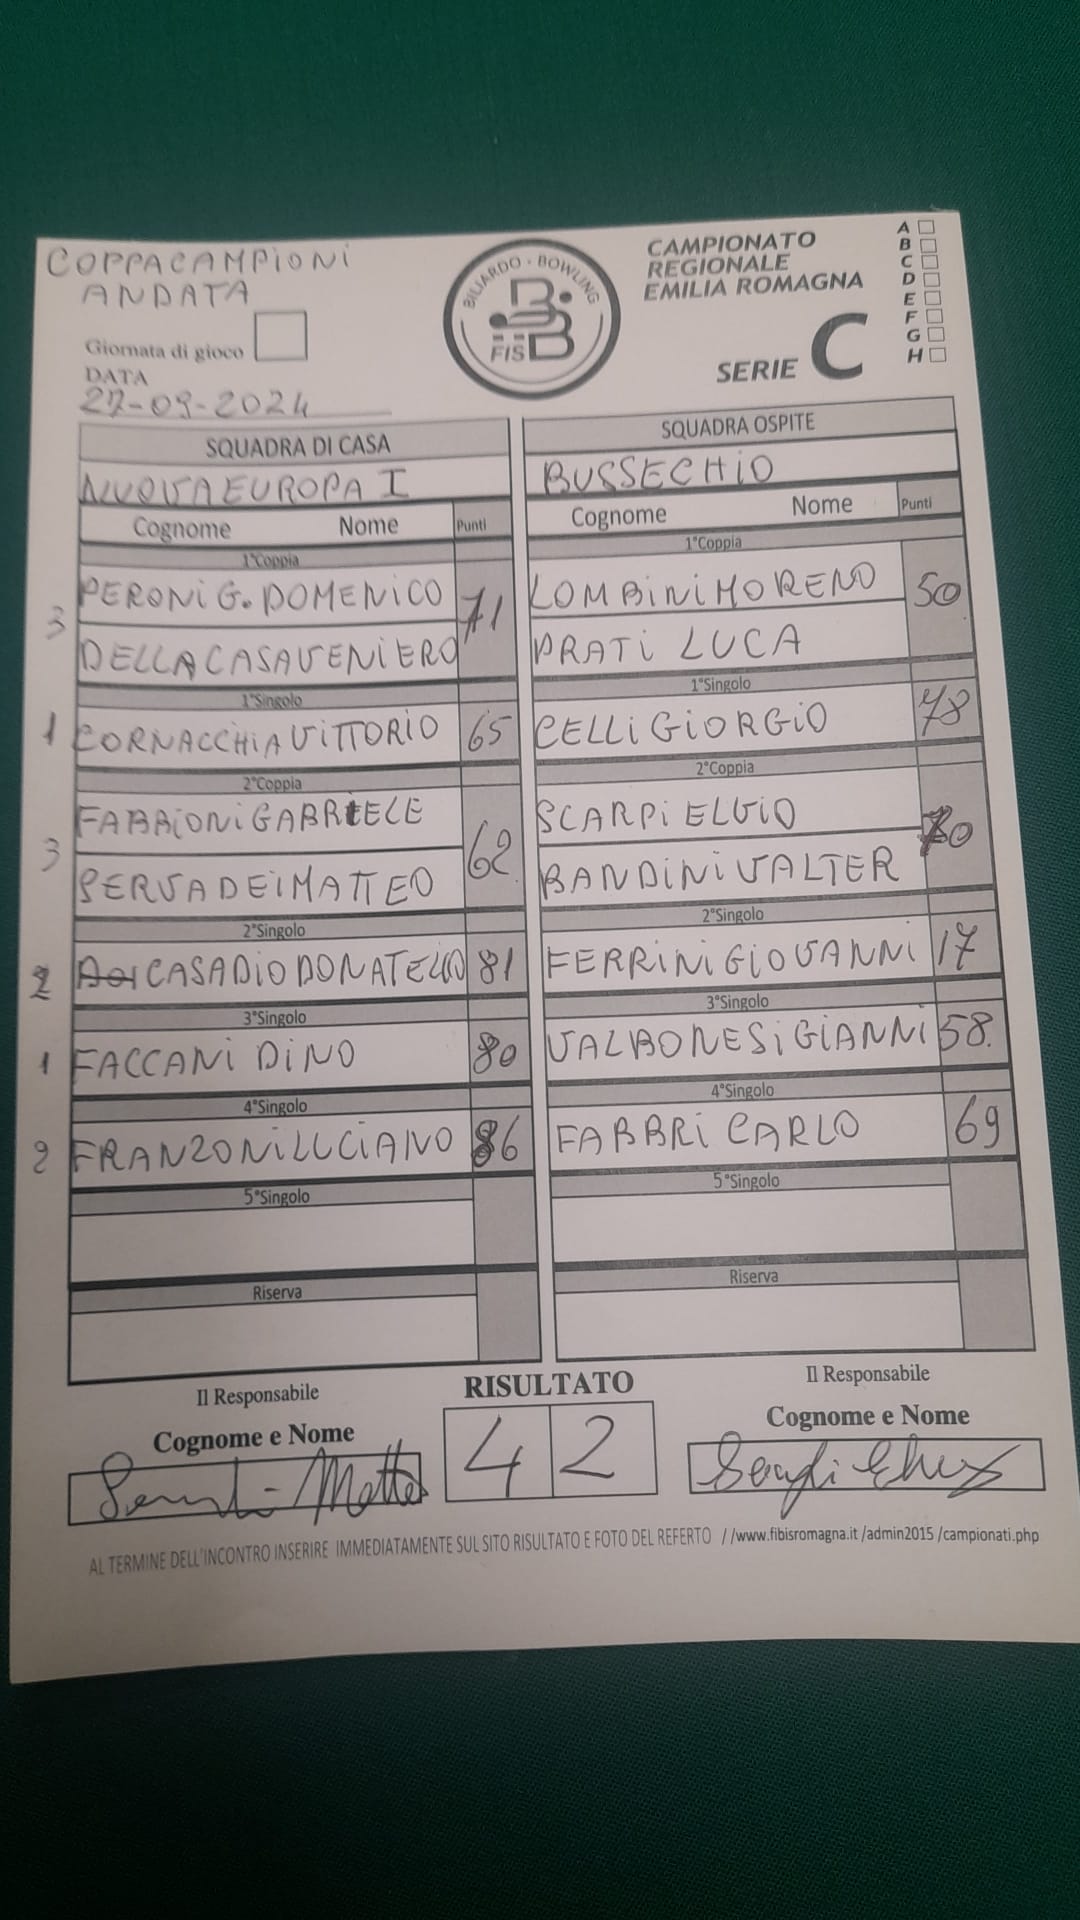 COPPA CAMPIONI
ANDATA
Giornata di gioco
DATA
27-09-2024
BILIARDO - BOWLING
FISBB
CAMPIONATO
REGIONALE
EMILIA ROMAGNA
SERIE C
A
B
C
D
E
F
G
H
SQUADRA DI CASA SQUADRA OSPITE
NUOVA EUROPA I BUSSECHIO
Cognome Nome Punti Cognome Nome Punti
1°Coppia 1°Coppia
3 PERONI G. DOMENICO 71 LOMBINI MORENO 50
DELLA CASA VENIERO PRATI LUCA
1°Singolo 1°Singolo
1 CORNACCHIA VITTORIO 65 CELLI GIORGIO 78
2°Coppia 2°Coppia
3 FABBIONI GABRIELE 62 SCARPI ELVIO 70
SERVADEI MATTEO BANDINI VALTER
2°Singolo 2°Singolo
2 CASADIO DONATELLO 81 FERRINI GIOVANNI 17
3°Singolo 3°Singolo
1 FACCANI DINO 80 VALBONESI GIANNI 58.
4°Singolo 4°Singolo
2 FRANZONI LUCIANO 86 FABBRI CARLO 69
5°Singolo 5°Singolo
Riserva Riserva
Il Responsabile RISULTATO Il Responsabile
Cognome e Nome 4 2 Cognome e Nome
AL TERMINE DELL'INCONTRO INSERIRE IMMEDIATAMENTE SUL SITO RISULTATO E FOTO DEL REFERTO //www.fibisromagna.it /admin2015 /campionati.php